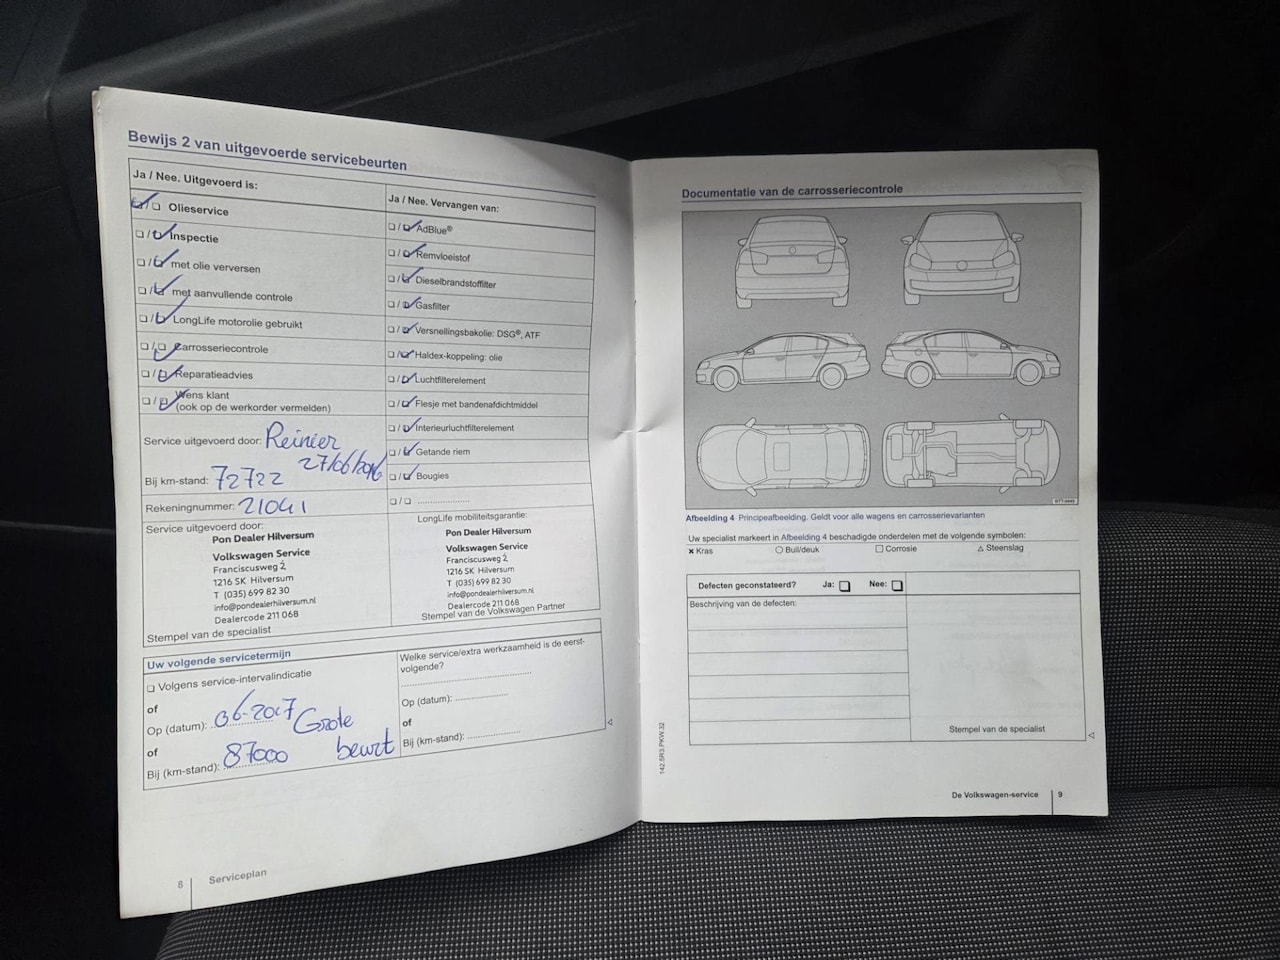 Bewijs 2 van uitgevoerde servicebeurten
Ja / Nee. Uitgevoerd is:
Olieservice
Inspectie
met olie verversen
met aanvullende controle
LongLife motorolie gebruikt
Carrosseriecontrole
Reparatieadvies
Wens klant
(ook op de werkorder vermelden)
Service uitgevoerd door: Reinier
27/06/2016
Bij km-stand: 72722
Rekeningnummer: 21041
Service uitgevoerd door:
Pon Dealer Hilversum
Volkswagen Service
Franciscusweg 2
1216 SK Hilversum
T (035) 699 82 30
info@pondealerhilversum.nl
Dealercode 211 068
Stempel van de specialist
Ja / Nee. Vervangen van:
AdBlue®
Remvloeistof
Dieselbrandstoffilter
Gasfilter
Versnellingsbakolie: DSG®, ATF
Haldex-koppeling: olie
Luchtfilterelement
Flesje met bandenafdichtmiddel
Interieurluchtfilterelement
Getande riem
Bougies
LongLife mobiliteitsgarantie:
Pon Dealer Hilversum
Volkswagen Service
Franciscusweg 2
1216 SK Hilversum
T (035) 699 82 30
info@pondealerhilversum.nl
Dealercode 211 068
Stempel van de Volkswagen Partner
Uw volgende servicetermijn
Volgens service-intervalindicatie
of
Op (datum): 06-2017 Grote
of
Bij (km-stand): 87000 beurt
Welke service/extra werkzaamheid is de eerst-
volgende?
Op (datum):
of
Bij (km-stand):
8 Serviceplan
Documentatie van de carrosseriecontrole
Afbeelding 4 Principeafbeelding. Geldt voor alle wagens en carrosserievarianten
Uw specialist markeert in Afbeelding 4 beschadigde onderdelen met de volgende symbolen:
Kras Buil/deuk Corrosie Steenslag
Defecten geconstateerd? Ja: Nee:
Beschrijving van de defecten:
Stempel van de specialist
142.5R3.PKW.32
De Volkswagen-service 9